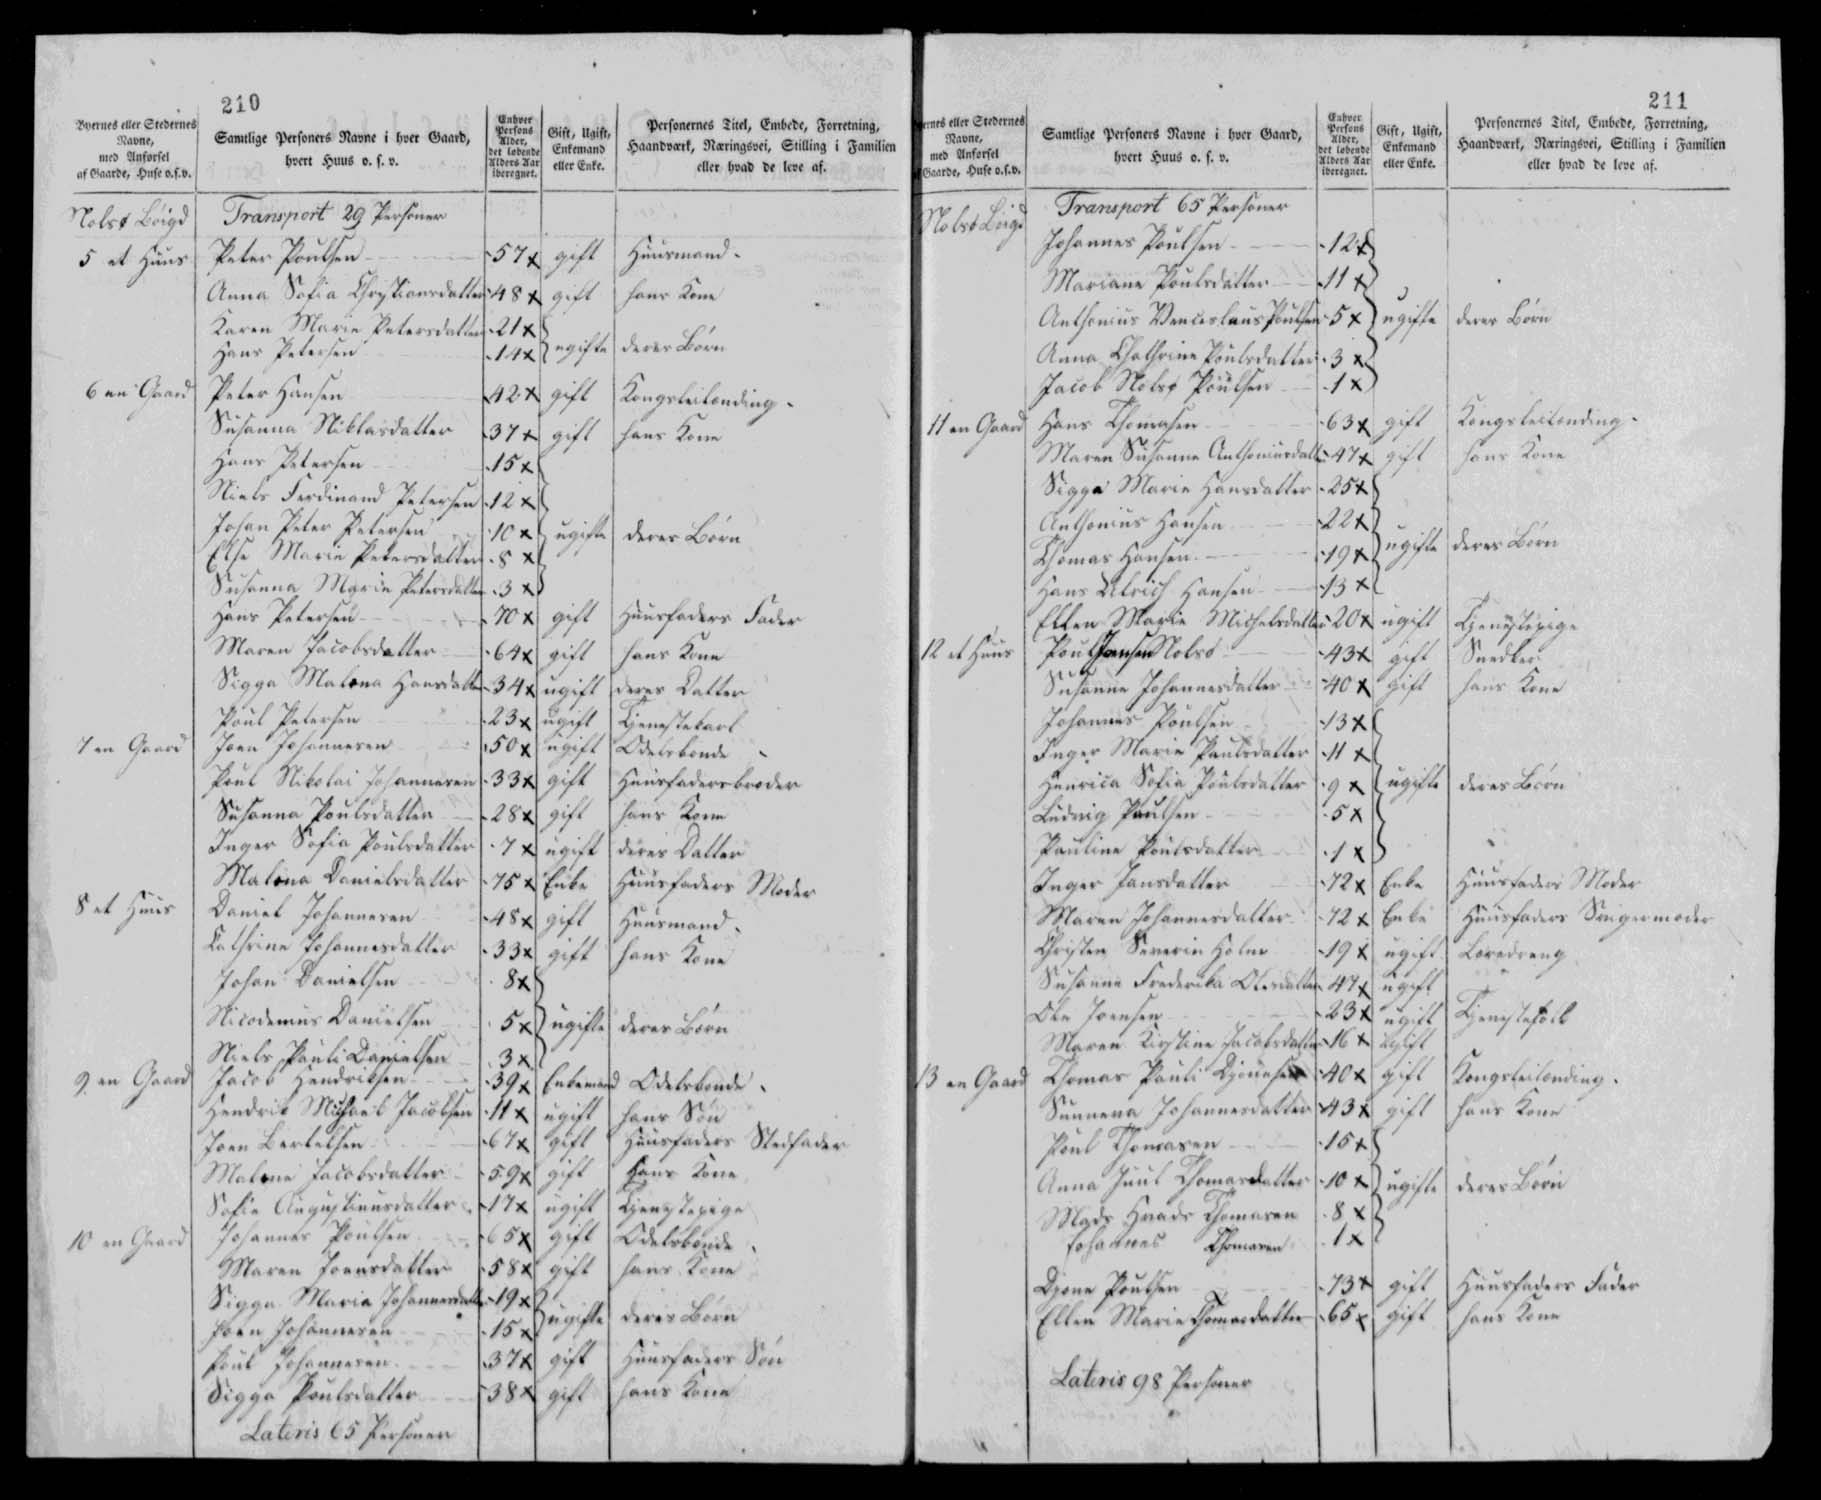 210
Byernes eller Stedernes Navne, med Anførsel af Gaarde, Huse o.s.v.
Samtlige Personers Navne i hver Gaard, hvert Huus o. s. v.
Enhver Persons Alder, det løbende Alders Aar iberegnet.
Gift, Ugift, Enkemand eller Enke.
Personernes Titel, Embede, Forretning, Haandværk, Næringsvei, Stilling i Familien eller hvad de leve af.
Nolsø Bøigd Transport 29 Personer
5 et Huus Peter Poulsen 57 x gift Huusmand
Anna Sofia Christiansdatter 48 x gift hans Kone
Karen Marie Petersdatter 21 x
Hans Petersen 14 x } ugifte deres Børn
6 en Gaard Peter Hansen 42 x gift Kongsleilending
Susanna Niklasdatter 37 x gift hans Kone
Hans Petersen 15 x
Niels Ferdinand Petersen 12 x
Johan Peter Petersen 10 x } ugifte deres Børn
Else Marie Petersdatter 8 x
Susanna Marie Petersdatter 3 x
Hans Petersen 70 x gift Huusfaders Fader
Maren Jacobsdatter 64 x gift hans Kone
Sigga Malena Hansdatter 34 x ugift deres Datter
Poul Petersen 23 x ugift Tjenestekarl
7 en Gaard Joen Johannesen 50 x ugift Odelsbonde
Poul Nikolai Johannesen 33 x gift Huusfadersbroder
Susanna Poulsdatter 28 x gift hans Kone
Inger Sofia Poulsdatter 7 x ugift deres Datter
Malena Danielsdatter 75 x Enke Huusfaders Moder
8 et Huus Daniel Johannesen 48 x gift Huusmand
Cathrine Johannesdatter 33 x gift hans Kone
Johan Danielsen 8 x
Nicodemus Danielsen 5 x } ugifte deres Børn
Niels Pauli Danielsen 3 x
9 en Gaard Jacob Hendriksen 39 x Enkemand Odelsbonde
Hendrik Michael Jacobsen 11 x ugift hans Søn
Joen Bertelsen 67 x gift Huusfaders Stedfader
Malene Jacobsdatter 59 x gift hans Kone
Sofie Augustinusdatter 17 x ugift Tjenestepige
10 en Gaard Johannes Poulsen 65 x gift Odelsbonde
Maren Joensdatter 58 x gift hans Kone
Sigga Maria Johannesdatter 19 x
Joen Johannesen 15 x } ugifte deres Børn
Poul Johannesen 37 x gift Huusfaders Søn
Sigga Poulsdatter 38 x gift hans Kone
Lateris 65 Personer
211
ernes eller Stedernes Navne, med Anførsel af Gaarde, Huse o.s.v.
Samtlige Personers Navne i hver Gaard, hvert Huus o. s. v.
Enhver Persons Alder, det løbende Alders Aar iberegnet.
Gift, Ugift, Enkemand eller Enke.
Personernes Titel, Embede, Forretning, Haandværk, Næringsvei, Stilling i Familien eller hvad de leve af.
Nolsø Bøigd Transport 65 Personer
Johannes Poulsen 12 x
Mariane Poulsdatter 11 x
Anthonius Venceslaus Poulsen 5 x } ugifte deres Børn
Anna Chathrine Poulsdatter 3 x
Jacob Nolsø Poulsen 1 x
11 en Gaard Hans Thomasen 63 x gift Kongsleilending
Maren Susanne Anthoniusdatter 47 x gift hans Kone
Sigga Marie Hansdatter 25 x
Anthonius Hansen 22 x
Thomas Hansen 19 x } ugifte deres Børn
Hans Ulrich Hansen 13 x
Ellen Marie Michelsdatter 20 x ugift Tjenestepige
12 et Huus Poul Jensen Nolsø 43 x gift Snedker
Susanne Johannesdatter 40 x gift hans Kone
Johannes Poulsen 13 x
Inger Marie Poulsdatter 11 x
Henrica Sofia Poulsdatter 9 x } ugifte deres Børn
Ludvig Poulsen 5 x
Pauline Poulsdatter 1 x
Inger Jansdatter 72 x Enke Huusfaders Moder
Maren Johannesdatter 72 x Enke Huusfaders Svigermoder
Christen Severin Holm 19 x ugift Læredreng
Susanne Frederika Olesdatter 47 x ugift
Ole Joensen 23 x ugift Tjenestefolk
Maren Kirstine Jacobsdatter 16 x ugift
13 en Gaard Thomas Pauli Djonesen 40 x gift Kongsleilending
Sunneva Johannesdatter 43 x gift hans Kone
Poul Thomasen 15 x
Anna Juul Thomasdatter 10 x } ugifte deres Børn
Mads Thomasen 8 x
Johannes Thomasen 1 x
Djone Poulsen 73 x gift Huusfaders Fader
Ellen Marie Thomasdatter 65 x gift hans Kone
Lateris 98 Personer